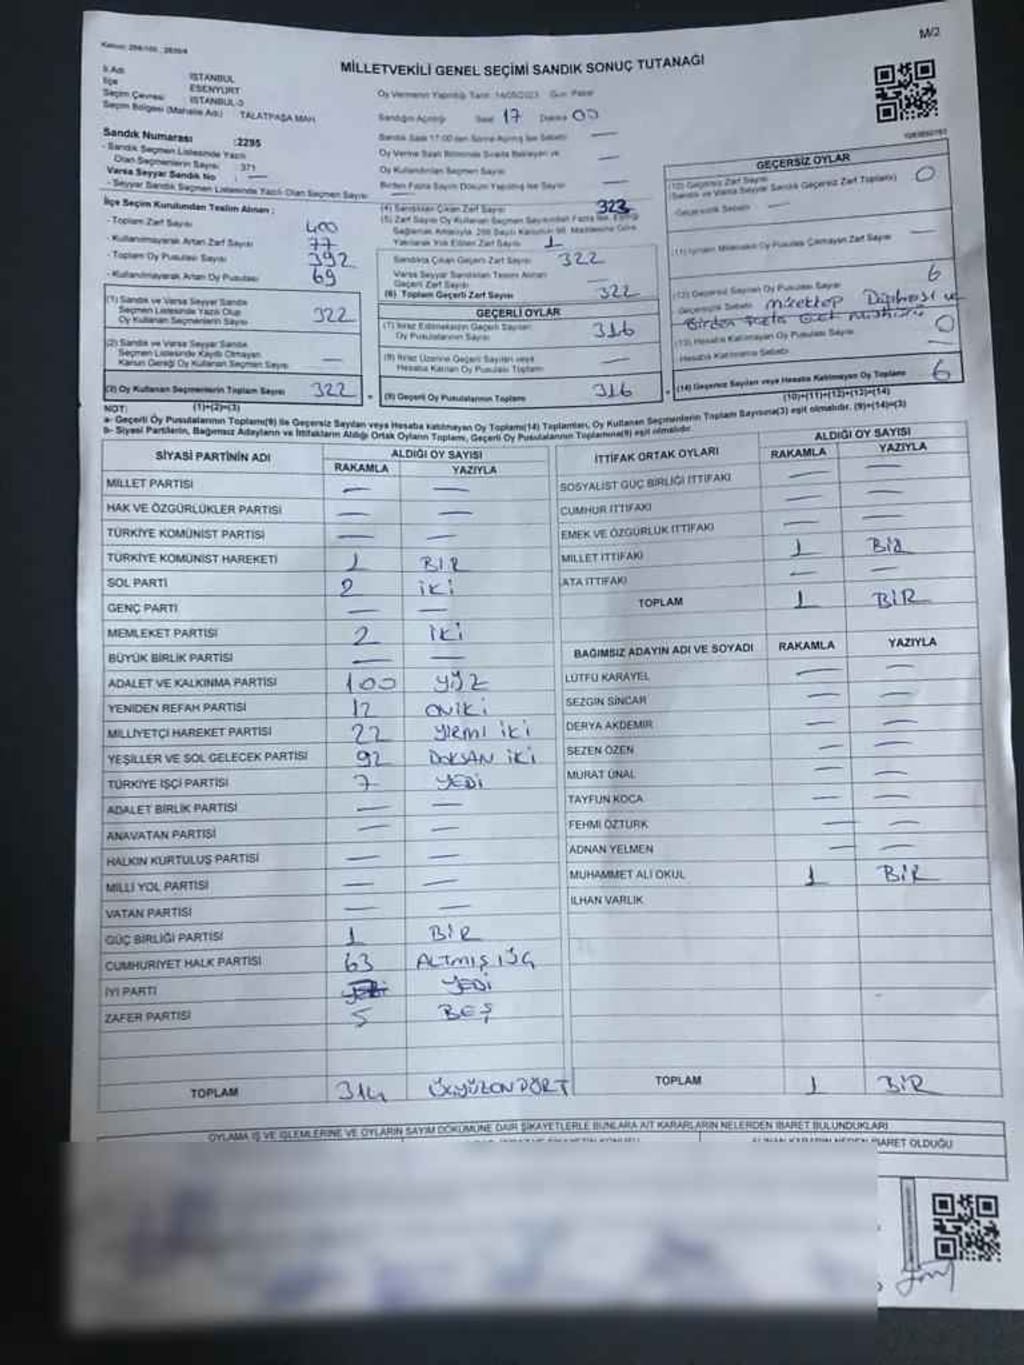 M/2
MİLLETVEKİLİ GENEL SEÇİMİ SANDIK SONUÇ TUTANAĞI
İl Adı İSTANBUL
İlçe ESENYURT
Seçim Çevresi İSTANBUL-3
Seçim Bölgesi (Mahalle Adı) TALATPAŞA MAH.
Oy Vermenin Yapıldığı Tarih 14/05/2023 Gün: Pazar
Sandığın Açıldığı Saat 17 Dakika 00
Sandık Numarası :2295
- Sandık Seçmen Listesinde Yazılı
Olan Seçmenlerin Sayısı : 371
Varsa Seyyar Sandık No : —
- Seyyar Sandık Seçmen Listesinde Yazılı Olan Seçmen Sayısı
Sandık Saat 17:00'den Sonra Açılmış İse Sebebi —
Oy Verme Saati Bitiminde Sırada Bekleyen ve —
Oy Kullandırılan Seçmen Sayısı
Birden Fazla Sayım Döküm Yapılmış İse Sayısı —
İlçe Seçim Kurulundan Teslim Alınan :
- Toplam Zarf Sayısı 400
- Kullanılmayarak Artan Zarf Sayısı 77
- Toplam Oy Pusulası Sayısı 392
- Kullanılmayarak Artan Oy Pusulası 69
(1) Sandık ve Varsa Seyyar Sandık
Seçmen Listesinde Yazılı Olup
Oy Kullanan Seçmenlerin Sayısı 322
(2) Sandık ve Varsa Seyyar Sandık
Seçmen Listesinde Kayıtlı Olmayan
Kanun Gereği Oy Kullanan Seçmen Sayısı —
(3) Oy Kullanan Seçmenlerin Toplam Sayısı 322
(1)+(2)=(3)
(4) Sandıktan Çıkan Zarf Sayısı 323
(5) Zarf Sayısı Oy Kullanan Seçmen Sayısından Fazla İse, Eşitliği
Sağlamak Amacıyla, 298 Sayılı Kanunun 98. Maddesine Göre
Yakılarak Yok Edilen Zarf Sayısı 1
Sandıkta Çıkan Geçerli Zarf Sayısı 322
Varsa Seyyar Sandıktan Teslim Alınan
Geçerli Zarf Sayısı
(6) Toplam Geçerli Zarf Sayısı 322
GEÇERLİ OYLAR
(7) İtiraz Edilmeksizin Geçerli Sayılan
Oy Pusulalarının Sayısı 316
(8) İtiraz Üzerine Geçerli Sayılan veya
Hesaba Katılan Oy Pusulası Toplamı —
(9) Geçerli Oy Pusulalarının Toplamı 316
GEÇERSİZ OYLAR
(10) Geçersiz Zarf Sayısı
(Sandık ve Varsa Seyyar Sandık Geçersiz Zarf Toplamı) 0
Geçersizlik Sebebi —
(11) İçinden Milletvekili Oy Pusulası Çıkmayan Zarf Sayısı —
(12) Geçersiz Sayılan Oy Pusulası Sayısı 6
Geçersizlik Sebebi
Birden Fazla
(13) Hesaba Katılmayan Oy Pusulası Sayısı 0
Hesaba Katılmama Sebebi —
(14) Geçersiz Sayılan veya Hesaba Katılmayan Oy Toplamı 6
(10)+(11)+(12)+(13)=(14)
NOT:
a- Geçerli Oy Pusulalarının Toplamı(9) ile Geçersiz Sayılan veya Hesaba katılmayan Oy Toplamı(14) Toplamları, Oy Kullanan Seçmenlerin Toplam Sayısına(3) eşit olmalıdır. (9)+(14)=(3)
b- Siyasi Partilerin, Bağımsız Adayların ve İttifakların Aldığı Ortak Oyların Toplamı, Geçerli Oy Pusulalarının Toplamına(9) eşit olmalıdır.
SİYASİ PARTİNİN ADI ALDIĞI OY SAYISI
RAKAMLA YAZIYLA
MİLLET PARTİSİ — —
HAK VE ÖZGÜRLÜKLER PARTİSİ — —
TÜRKİYE KOMÜNİST PARTİSİ — —
TÜRKİYE KOMÜNİST HAREKETİ 1 BİR
SOL PARTİ 2 İKİ
GENÇ PARTİ — —
MEMLEKET PARTİSİ 2 İKİ
BÜYÜK BİRLİK PARTİSİ — —
ADALET VE KALKINMA PARTİSİ 100 YÜZ
YENİDEN REFAH PARTİSİ 12 ONİKİ
MİLLİYETÇİ HAREKET PARTİSİ 22 YİRMİ İKİ
YEŞİLLER VE SOL GELECEK PARTİSİ 92 DOKSAN İKİ
TÜRKİYE İŞÇİ PARTİSİ 7 YEDİ
ADALET BİRLİK PARTİSİ — —
ANAVATAN PARTİSİ — —
HALKIN KURTULUŞ PARTİSİ — —
MİLLİ YOL PARTİSİ — —
VATAN PARTİSİ — —
GÜÇ BİRLİĞİ PARTİSİ 1 BİR
CUMHURİYET HALK PARTİSİ 63 ALTMIŞ ÜÇ
İYİ PARTİ YEDİ
ZAFER PARTİSİ 5 BEŞ
TOPLAM 314 ÜÇYÜZONDÖRT
İTTİFAK ORTAK OYLARI ALDIĞI OY SAYISI
RAKAMLA YAZIYLA
SOSYALİST GÜÇ BİRLİĞİ İTTİFAKI — —
CUMHUR İTTİFAKI — —
EMEK VE ÖZGÜRLÜK İTTİFAKI — —
MİLLET İTTİFAKI 1 BİR
ATA İTTİFAKI — —
TOPLAM 1 BİR
BAĞIMSIZ ADAYIN ADI VE SOYADI RAKAMLA YAZIYLA
LÜTFÜ KARAYEL — —
SEZGİN SİNCAR — —
DERYA AKDEMİR — —
SEZEN ÖZEN — —
MURAT ÜNAL — —
TAYFUN KOCA — —
FEHMİ ÖZTÜRK — —
ADNAN YELMEN — —
MUHAMMET ALİ OKUL 1 BİR
İLHAN VARLIK
TOPLAM 1 BİR
OYLAMA İŞ VE İŞLEMLERİNE VE OYLARIN SAYIM DÖKÜMÜNE DAİR ŞİKAYETLERLE BUNLARA AİT KARARLARIN NELERDEN İBARET BULUNDUKLARI
İBARET OLDUĞU